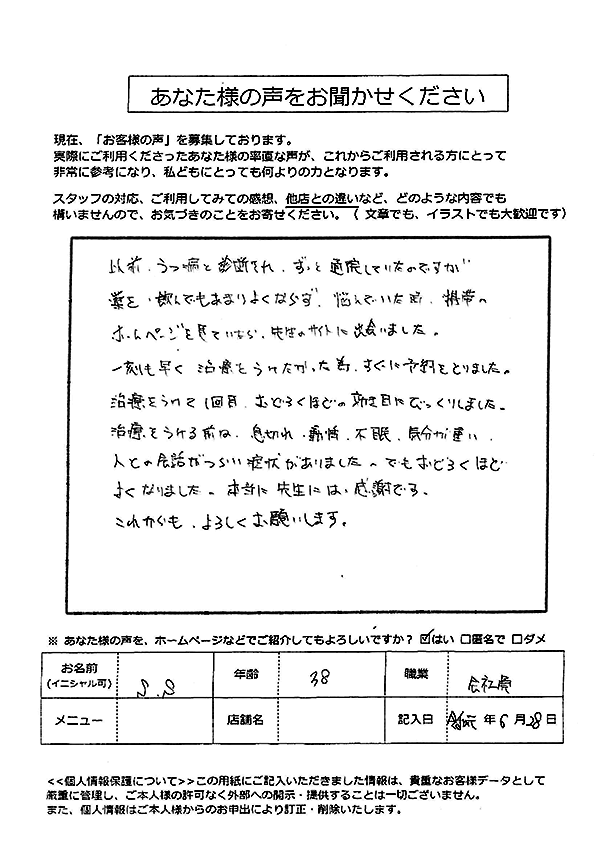 あなた様の声をお聞かせください
現在、「お客様の声」を募集しております。
実際にご利用くださったあなた様の率直な声が、これからご利用される方にとって
非常に参考になり、私どもにとっても何よりの力となります。
スタッフの対応、ご利用してみての感想、他店との違いなど、どのような内容でも
構いませんので、お気づきのことをお寄せください。（ 文章でも、イラストでも大歓迎です）
以前、うつ病と診断され、ずっと通院していたのですが
薬を、飲んでもあまりよくならず、悩んでいた時、携帯の
ホームページを見ていたら、先生のサイトに出会いました。
一刻も早く 治療をうけたかった為、すぐに予約をとりました。
治療をうけて1回目、おどろくほどの効き目にびっくりしました。
治療をうける前は、息切れ、動悸、不眠、気分が悪い、
人との会話がつらい症状がありました。でもおどろくほど
よくなりました。本当に先生には、感謝です。
これからも、よろしくお願いします。
※ あなた様の声を、ホームページなどでご紹介してもよろしいですか？ ☑はい □匿名で □ダメ
お名前 (イニシャル可) S.S 年齢 38 職業 会社員
メニュー 店舗名 記入日 年 6 月 28 日
<<個人情報保護について>>この用紙にご記入いただきました情報は、貴重なお客様データとして
厳重に管理し、ご本人様の許可なく外部への開示・提供することは一切ございません。
また、個人情報はご本人様からのお申出により訂正・削除いたします。